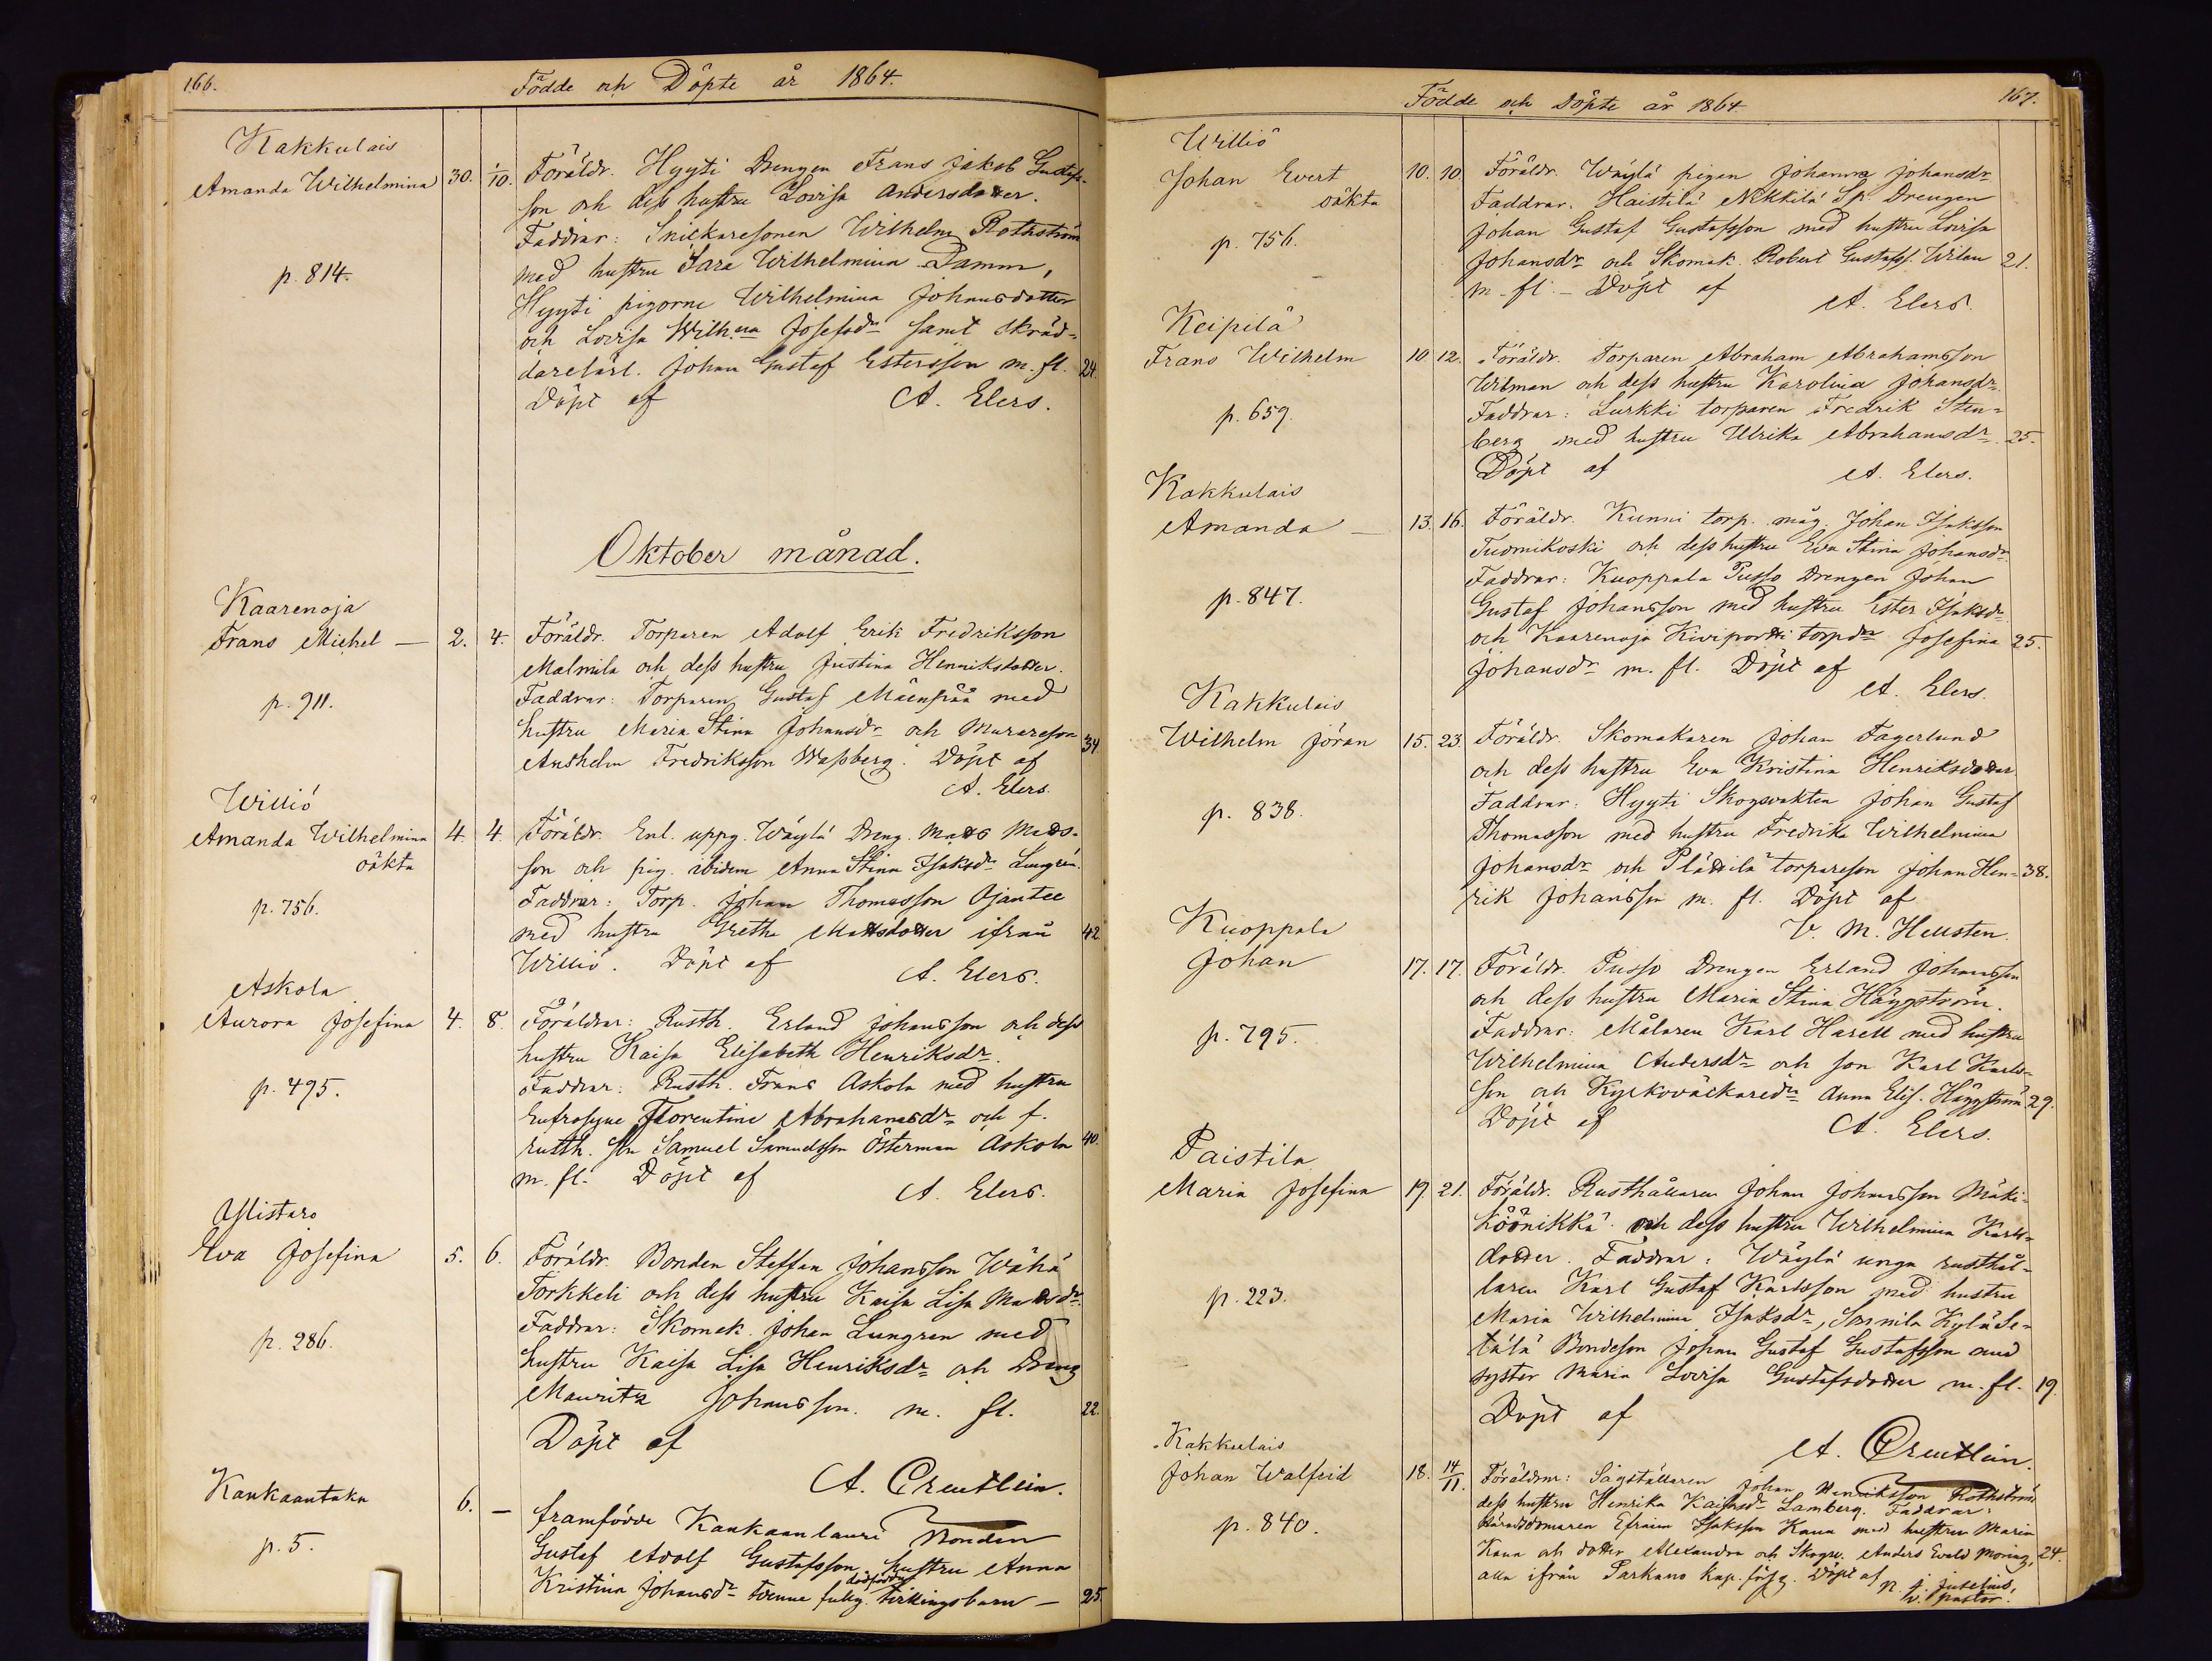 166.
Födde och Döpte år 1864.
Kakkulais
Amanda Wilhelmina 30. 1/10. Föräldr. Hyyti Drengen Frans Jakob Gustafs-
son och dess hustru Lovisa Andersdotter.
Faddrar: Snickaresonen Wilhelm Rothström
p. 814.
med hustru Sara Wilhelmina Damm,
Hyyti pigorne Wilhelmina Johansdotter
och Lovisa Wilh:na Josefsdr samt skräd-
darelärl. Johan Gustaf Estersson m. fl. 24.
Döpt af A. Elers.
Oktober månad.
Kaarenoja
Frans Michel — 2. 4. Föräldr. Torparen Adolf Erik Fredriksson
Malmila och dess hustru Justina Henriksdotter.
p. 911.
Faddrar: Torparen Gustaf Mäenpää med
hustru Maria Stina Johansdr och Murareson 34
Anshelm Fredriksson Wassberg. Döpt af
A. Elers.
Williö
Amanda Wilhelmina 4. 4. Föräldr. Enl. uppg. Wäylä Dreng. Matts Matts-
oäkta
son och pig. ibidem Anna Stina Isaksdr Lungrén.
p. 756.
Faddrar: Torp. Johan Thomasson Ojantee
med hustru Gretha Mattsdotter ifrån 42
Williö. Döpt af A. Elers.
Askola
Aurora Josefina 4. 8. Föräldrar: Rusth. Erland Johansson och dess
hustru Kaisa Elisabeth Henriksdr.
p. 495.
Faddrar: Rusth. Frans Askola med hustru
Eufrosyne Florentine Abrahamsdr och f.
rusth. son Samuel Samuelsson Österman Askola 40.
m. fl. Döpt af A. Elers.
Ylistaro
Eva Josefina 5. 6. Föräldr. Bonden Steffan Johansson Wähä
Torkkeli och dess hustru Kaisa Lisa Mattsdr.
p. 286.
Faddrar: Skomak. Johan Lungren med
hustru Kaisa Lisa Henriksdr och Dreng
Mauritz Johansson. m. fl. 22.
Döpt af
A. Creutlein.
Kankaantaka 6. — framfödde Kankaanlauri Bonden
p. 5.
Gustaf Adolf Gustafsson hustru Anna
dödfödda
Kristina Johansdr tvenne fullg. tvillingsbarn — 25.
Födde och Döpte år 1864.
167.
Williö
Johan Evert 10. 10. Föräldr. Wäylä pigan Johanna Johansdr
oäkta
Faddrar. Haistila Nikkilä Sp. Drengen
p. 756.
Johan Gustaf Gustafsson med hustru Lovisa
Johansdr och Skomak. Robert Gustafss. Wilen 21.
m. fl. — Döpt af A. Elers.
Keipilä
Frans Wilhelm 10 12. Föräldr. Torparen Abraham Abrahamsson
Widman och dess hustru Karolina Johansdr.
p. 659.
Faddrar: Lurkki torparen Fredrik Sten-
berg med hustru Ulrika Abrahamsdr. 25.
Döpt af A. Elers.
Kakkulais
Amanda — 13. 16. Föräldr. Kunni torp. måg. Johan Isaksson
Tuomikoski och dess hustru Eva Stina Johansdr.
p. 847.
Faddrar: Kuoppala Pusso Drengen Johan
Gustaf Johansson med hustru Ester Isaksdr
och Kaarenoja Kiviportti torpdr Josefina 25.
Johansdr m. fl. Döpt af
A. Elers.
Kakkulais
Wilhelm Jöran 15. 23. Föräldr. Skomakaren Johan Fagerlund
och dess hustru Eva Kristina Henriksdotter
p. 838.
Faddrar: Hyyti Skogsvakten Johan Gustaf
Thomasson med hustru Fredrika Wilhelmina
Johansdr och Plättilä torpareson Johan Hen- 38.
rik Johansson m. fl. Döpt af
V. M. Hellsten.
Kuoppala
Johan 17. 17. Föräldr. Pusso Drengen Erland Johansson
och dess hustru Maria Stina Häggström.
p. 795.
Faddrar: Målaren Karl Harell med hustru
Wilhelmina Andersdr och son Karl Karls-
son och Kyrkoväckaredr Anna Elis. Häggström 29.
Döpt af A. Elers.
Paistila
Maria Josefina 19. 21. Föräldr. Rusthållaren Johan Johansson Mäki-
köönikkä och dess hustru Wilhelmina Karls-
dotter. Faddrar: Wäylä unga rusthål-
p. 223.
laren Karl Gustaf Karlsson med hustru
Maria Wilhelmina Isaksdr, Sonnila Kylä Se-
tälä Bondeson Johan Gustaf Gustafsson med
syster Maria Lovisa Gustafsdotter m. fl. 19.
Döpt af
A. Creutlein.
Kakkulais
Johan Walfrid 18. 14/11. Föräldrar: Sågställaren Johan Henriksson Rothström
dess hustru Henrika Kaisasdr Lamberg. Faddrar:
p. 840.
Häradsdomaren Efraim Isaksson Kaua med hustru Maria
Kaua och dotter Alexandra och Skogsv. Anders Evald Moring, 24.
alla ifrån Parkano kap. förs. Döpt af N. J. Juselius,
v. pastor.